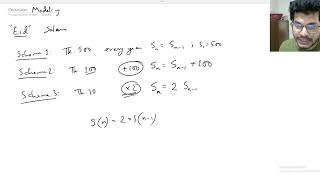 Recursion Modeling
"Eid" Salami
Scheme 1: Tk. 500 every year Sₙ = Sₙ₋₁ ; S₁ = 500
Scheme 2: Tk 100 +100 Sₙ = Sₙ₋₁ + 100
Scheme 3: Tk. 10 ×2 Sₙ = 2 Sₙ₋₁
S(n) = 2 * S(n-1)